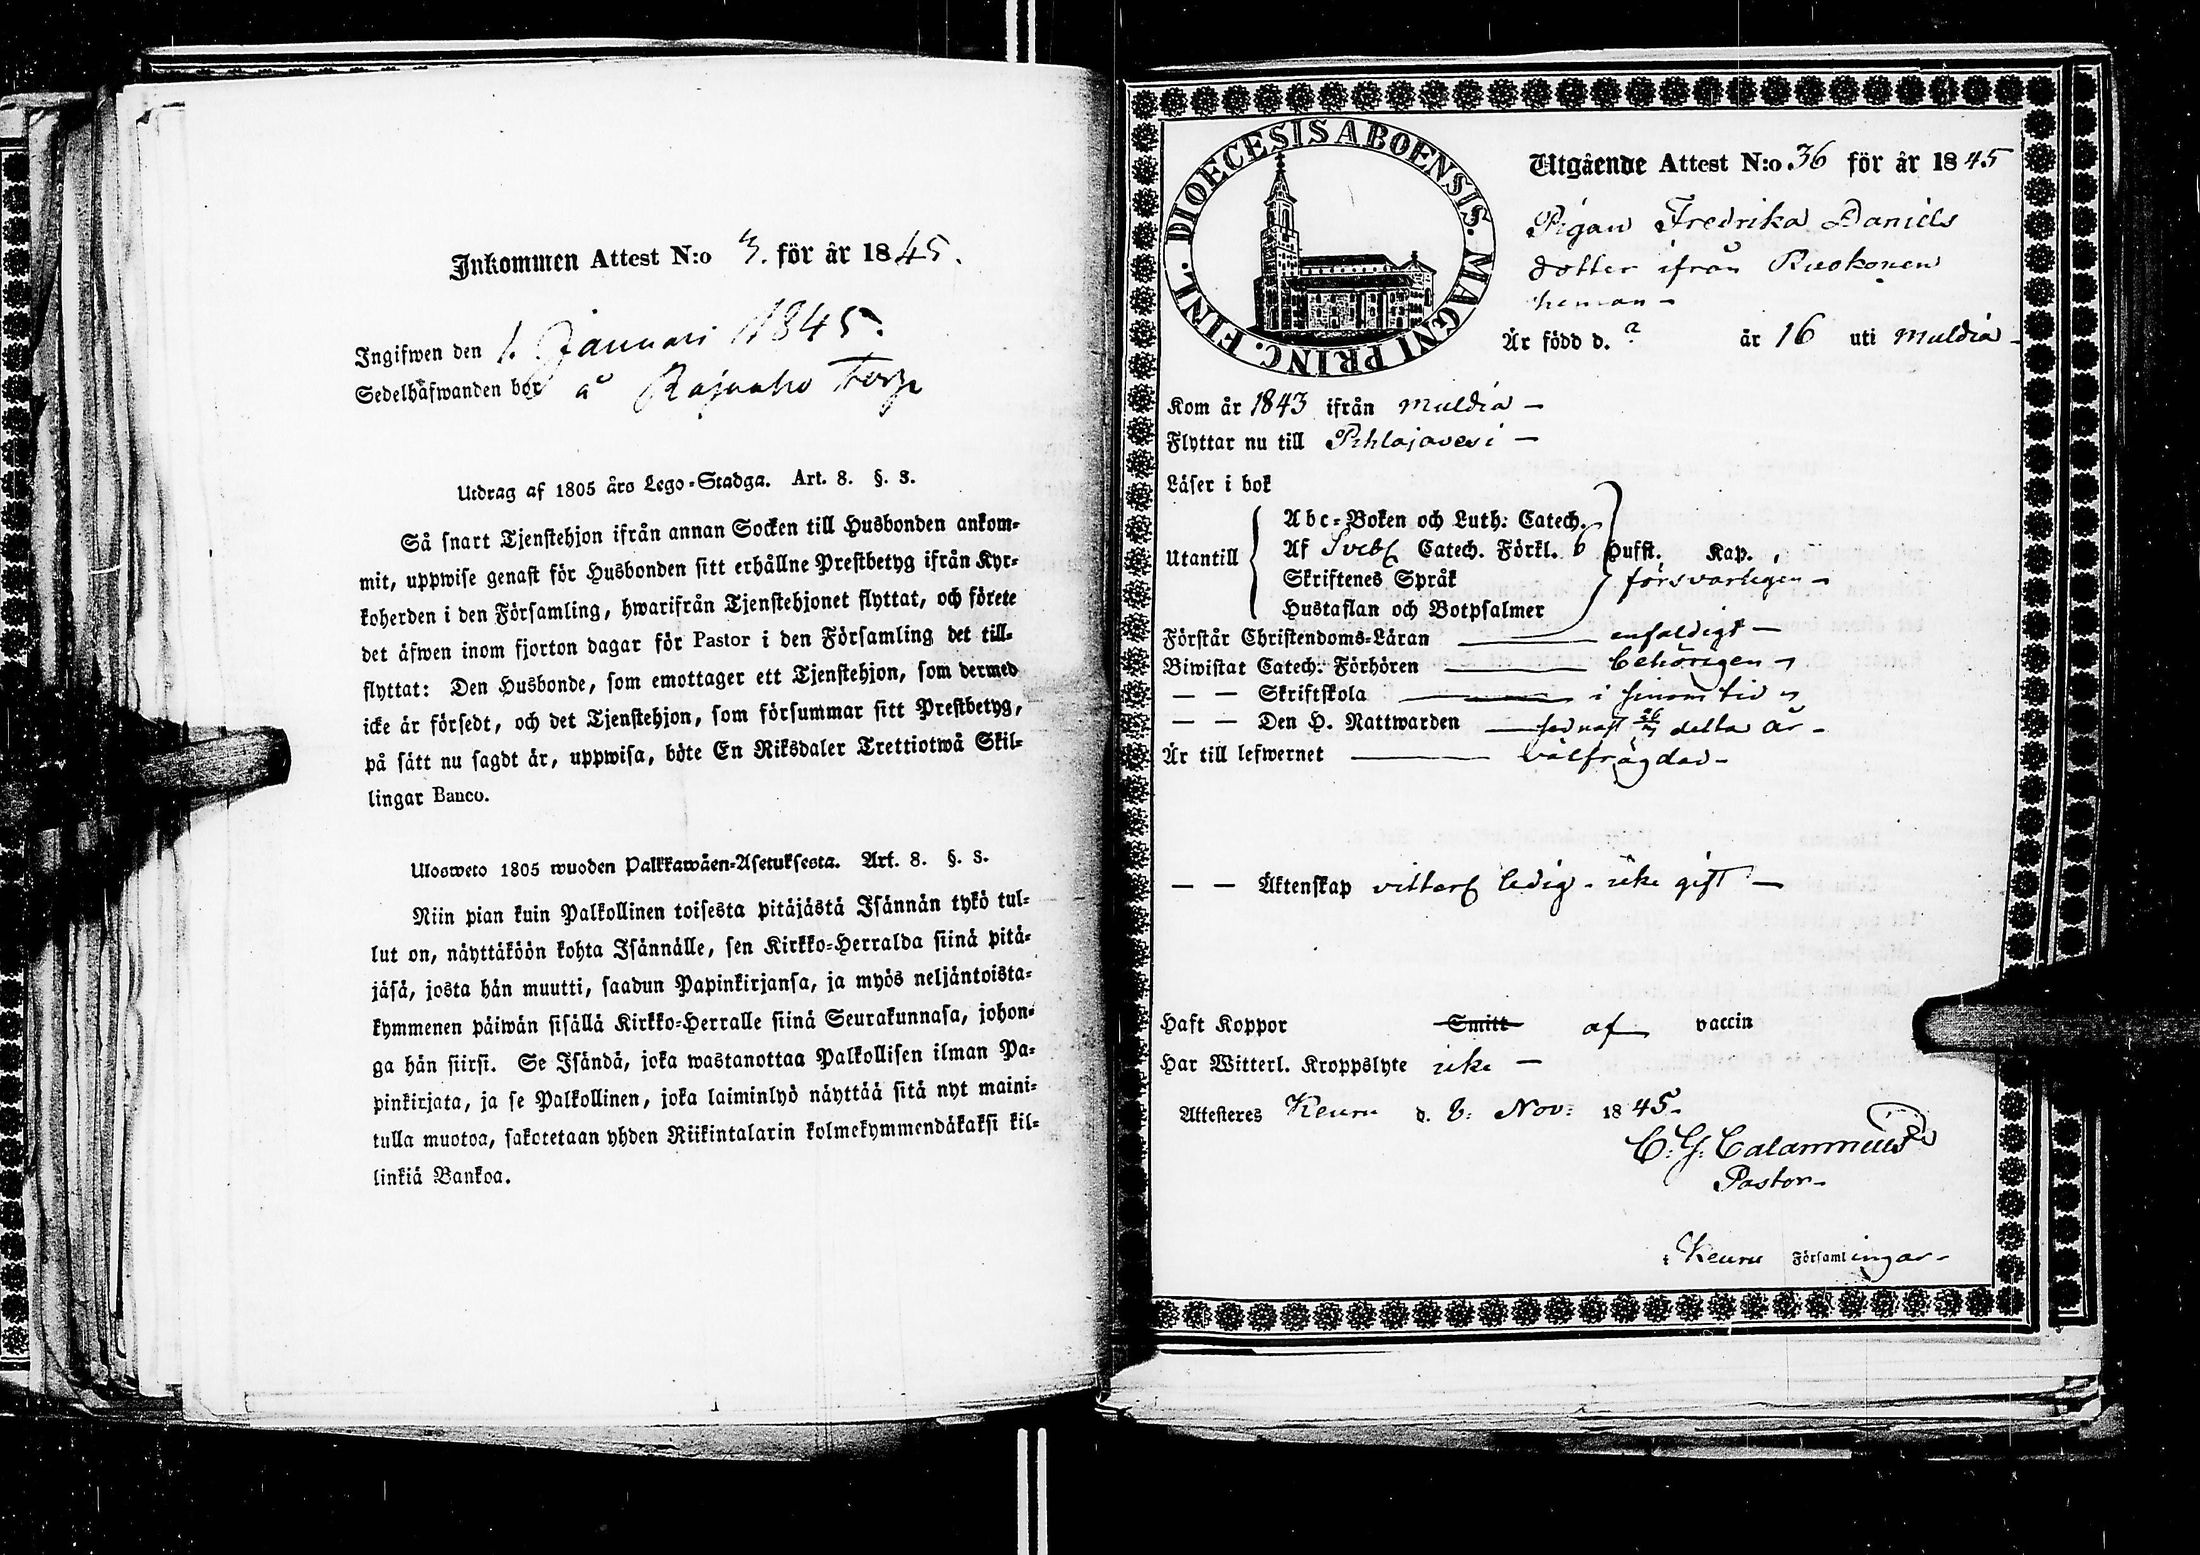 Inkommen Attest N:o 3. för år 1845.
Ingifwen den 1. Januari 1845.
Sedelhäfwanden bor å Rajaaho Torp
Utdrag af 1805 års Lego-Stadga. Art. 8. §. 3.
Så snart Tjenstehjon ifrån annan Socken till Husbonden ankom-
mit, uppwise genast för Husbonden sitt erhållne Prestbetyg ifrån Kyr-
koherden i den Församling, hwarifrån Tjenstehjonet flyttat, och förete
det äfwen inom fjorton dagar för Pastor i den Församling det till-
flyttat: Den Husbonde, som emottager ett Tjenstehjon, som dermed
icke är försedt, och det Tjenstehjon, som försummar sitt Prestbetyg,
på sätt nu sagdt är, uppwisa, böte En Riksdaler Trettiotwå Skil-
lingar Banco.
Ulosweto 1805 wuoden Palkkawäen-Asetuksesta. Art. 8. §. 3.
Niin pian kuin Palkollinen toisesta pitäjästä Isännän tykö tul-
lut on, näyttäköön kohta Isännälle, sen Kirkko-Herralda siinä pitä-
jäsä, josta hän muutti, saadun Papinkirjansa, ja myös neljäntoista-
kymmenen päiwän sisällä Kirkko-Herralle siinä Seurakunnasa, johon-
ga hän siirsi. Se Isändä, joka wastanottaa Palkollisen ilman Pa-
pinkirjata, ja se Palkollinen, joka laiminlyö näyttää sitä nyt maini-
tulla muotoa, sakotetaan yhden Riikintalarin kolmekymmendäkaksi kil-
linkiä Bankoa.
DIOECESIS ABOENSIS. MAGNI PRINC. FINL.
Utgående Attest N:o 36 för år 1845
Pigan Fredrika Daniels
dotter ifrån Ruokonen
heman -
Är född d. ? år 16 uti Muldia -
Kom år 1843 ifrån Muldia -
Flyttar nu till Pihlajavesi -
Läser i bok
Abc-Boken och Luth: Catech.
Utantill Af Sveb. Catech. Förkl. 6 Hufst. Kap.
Skriftenes Språk försvarligen -
Hustaflan och Botpsalmer
Förstår Christendoms-Läran enfaldigt -
Biwistat Catech: Förhören behörigen -
— — Skriftskola i sinom tid
— — Den H. Nattwarden sednast detta år -
Är till lefwernet välfrägdad -
— — Äktenskap vitterl. ledig - icke gift -
Haft Koppor Smitt af vaccin
Har Witterl. Kroppslyte icke -
Attesteres Keuru d. 8. Nov: 1845.
C. G. Calamnius
Pastor -
i Keuru Församlingar -